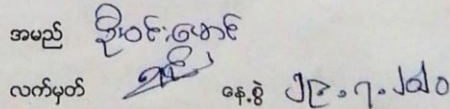 အမည် ဦးဝင်းမောင်
လက်မှတ် နေ့စွဲ ၂၉.၇.၂၀၂၀